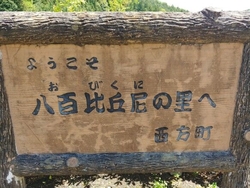 ようこそ
おびくに
八百比丘尼の里へ
西方町